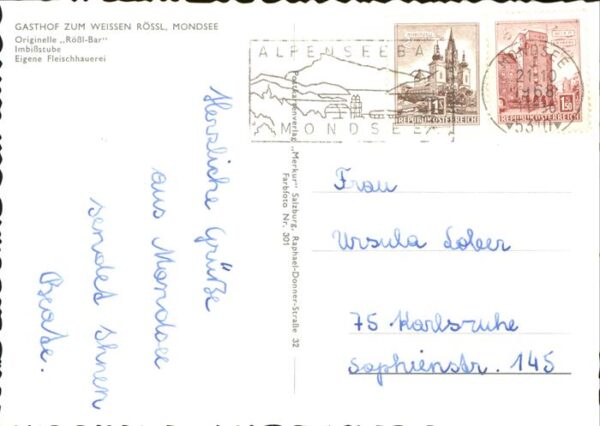 GASTHOF ZUM WEISSEN RÖSSL, MONDSEE
Originelle „Rößl-Bar"
Imbißstube
Eigene Fleischhauerei
ALPENSEEBA
MONDSEE
1S
REPUBLIK ÖSTERREICH
1.50
REPUBLIK ÖSTERREICH
MONDSEE
21-10
5310
Herzliche Grüße
aus Mondsee
sendet Ihnen
Beate.
Postkartenverlag „Merkur" Salzburg, Raphael-Donner-Straße 32
Farbfoto Nr. 301
Frau
Ursula Lober
75 Karlsruhe
Sophienstr. 145